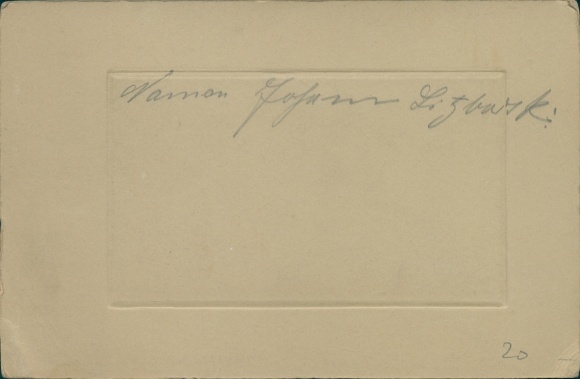 Namen Johann Litzbarski
20